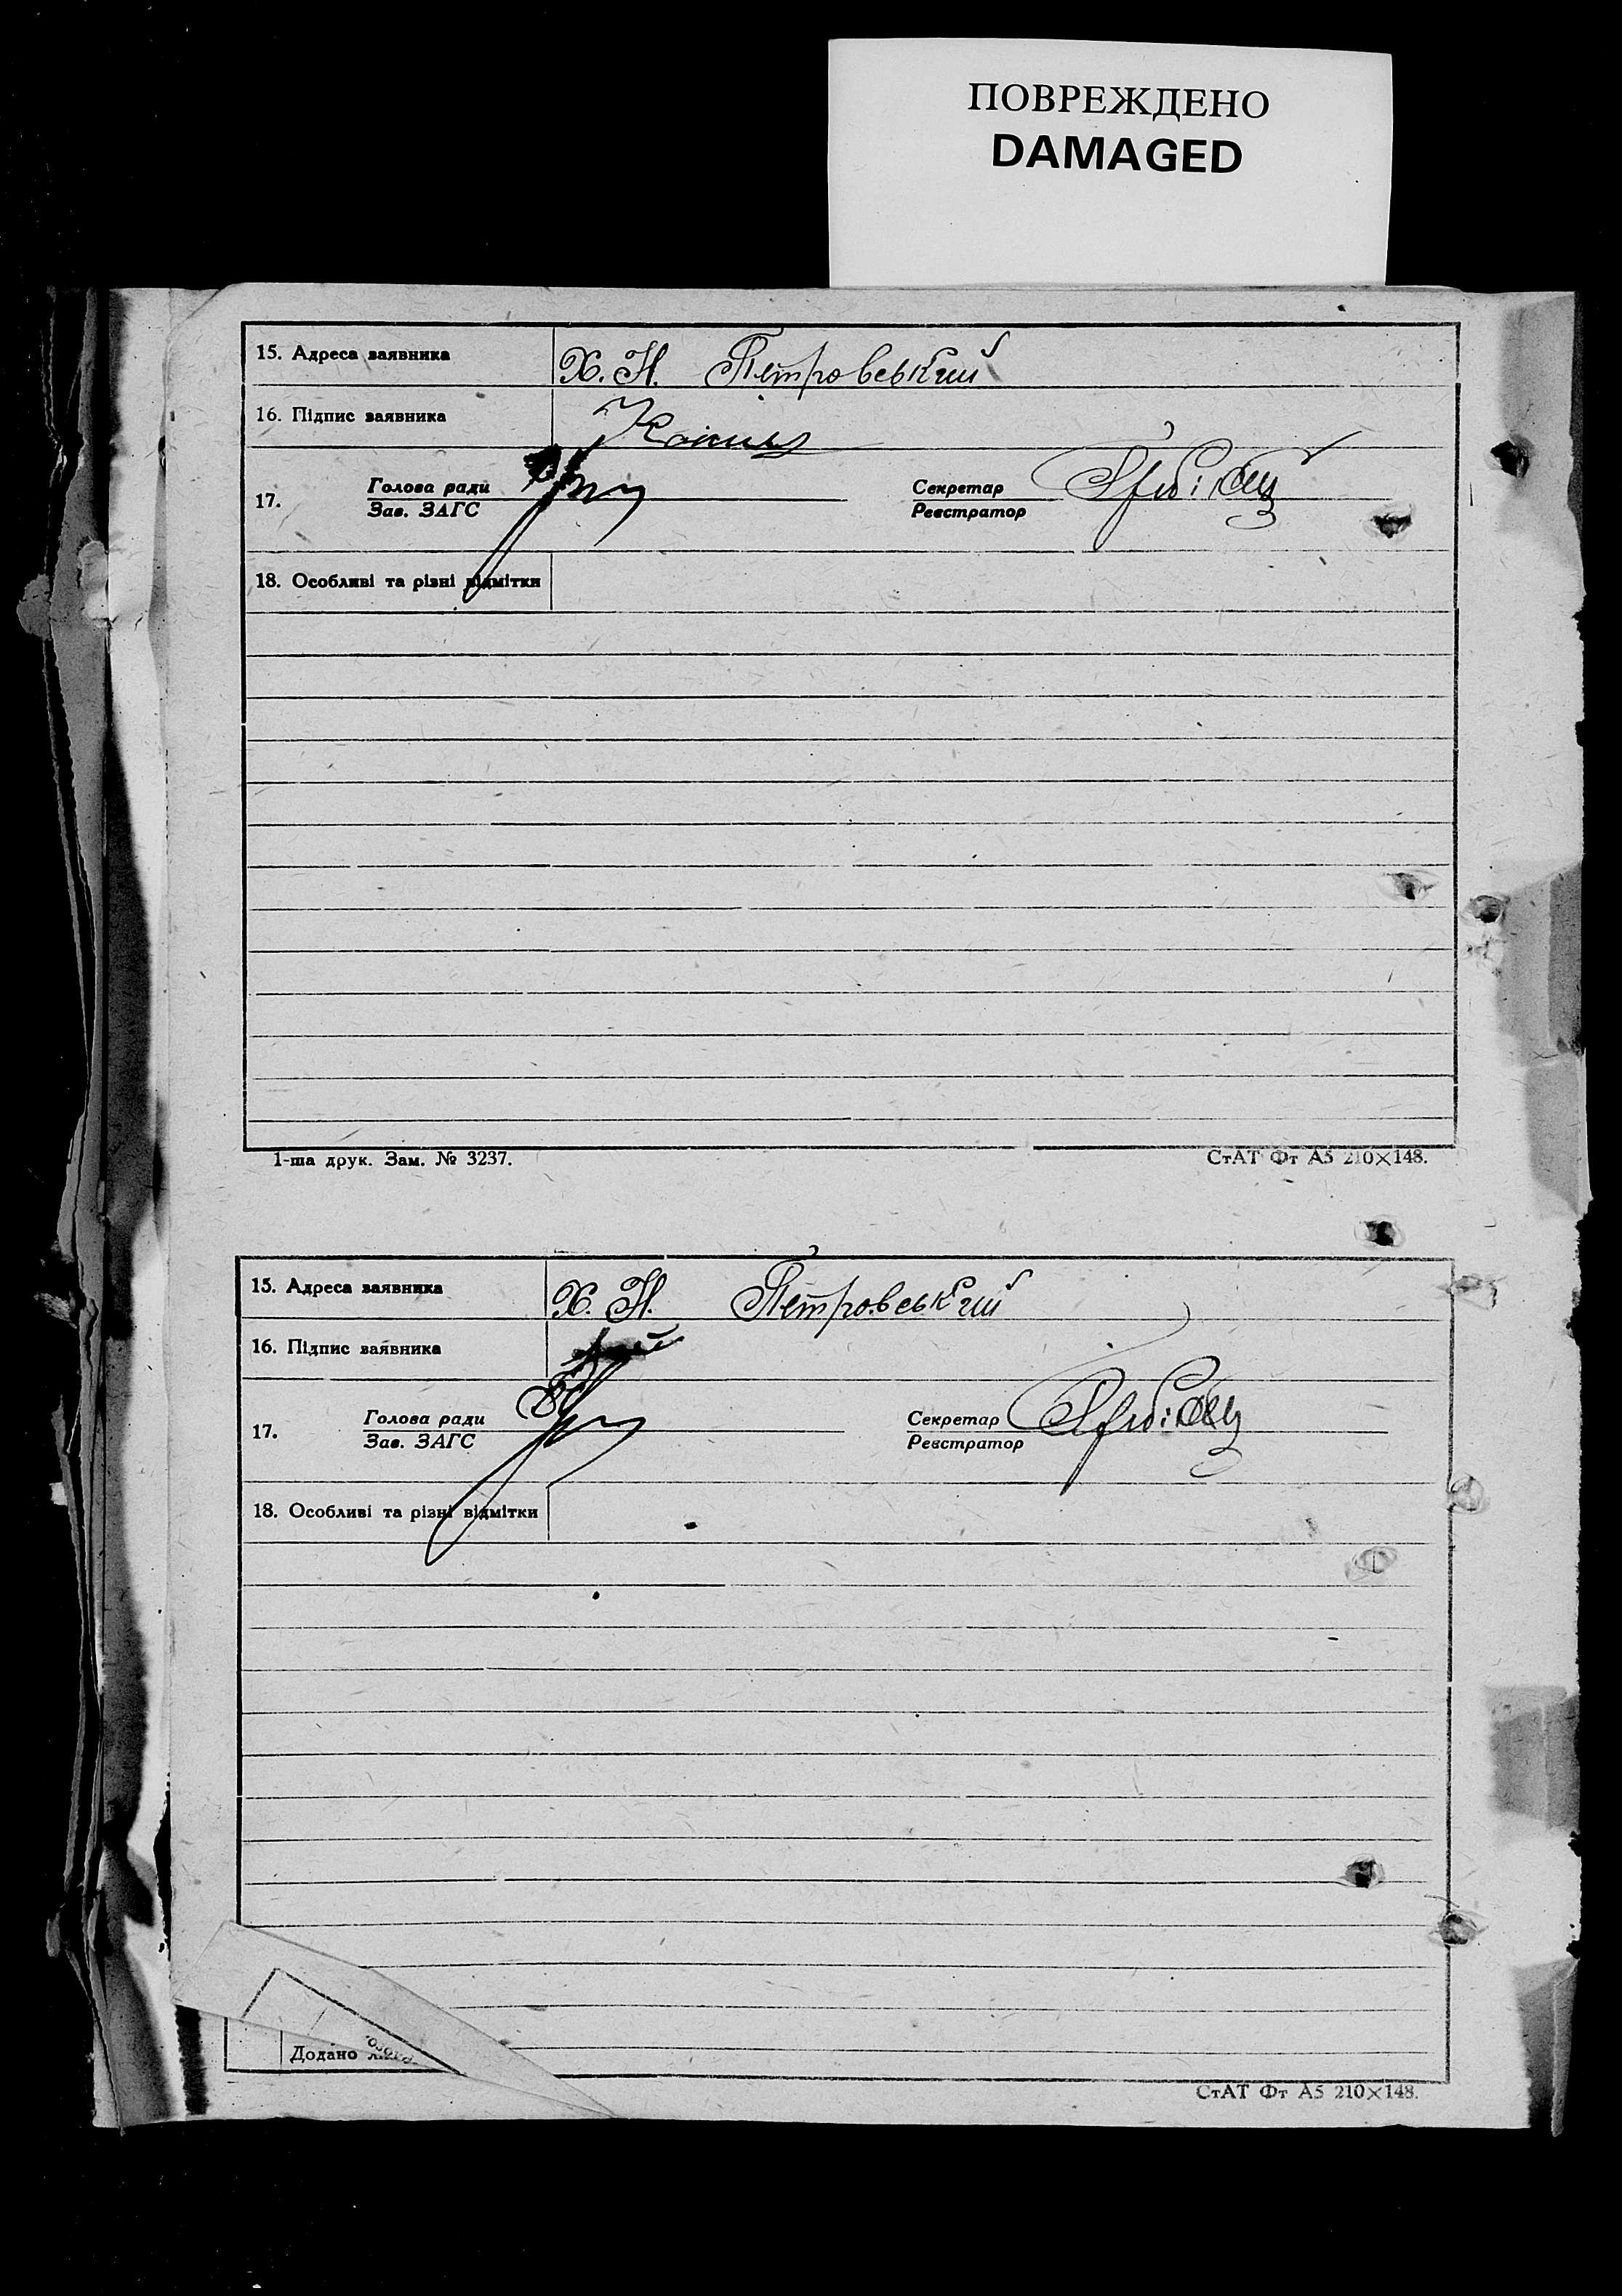 ПОВРЕЖДЕНО
DAMAGED
15. Адреса заявника Х. Н. Петровський
16. Підпис заявника
17. Голова ради Секретар
Зав. ЗАГС Реєстратор
18. Особливі та різні відмітки
1-ша друк. Зам. № 3237. СтАТ Фт А5 210×148.
15. Адреса заявника Х. Н. Петровський
16. Підпис заявника
17. Голова ради Секретар
Зав. ЗАГС Реєстратор
18. Особливі та різні відмітки
Додано
СтАТ Фт А5 210×148.